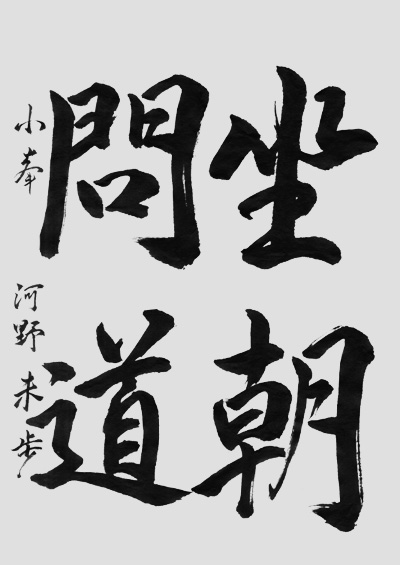 坐朝
問道
小奉 河野未歩